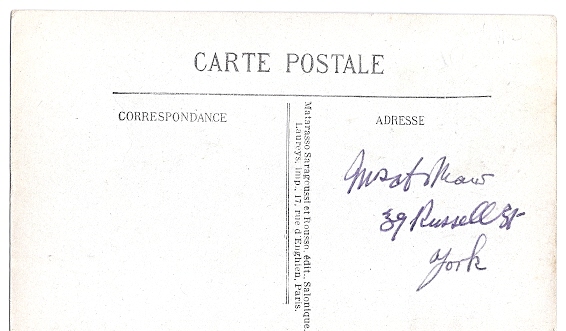 CARTE POSTALE
CORRESPONDANCE
Matarasso Saragoussi et Rousso, édit., Salonique.
Laureys, imp., 17, rue d'Enghien, Paris.
ADRESSE
39 Russell St
York